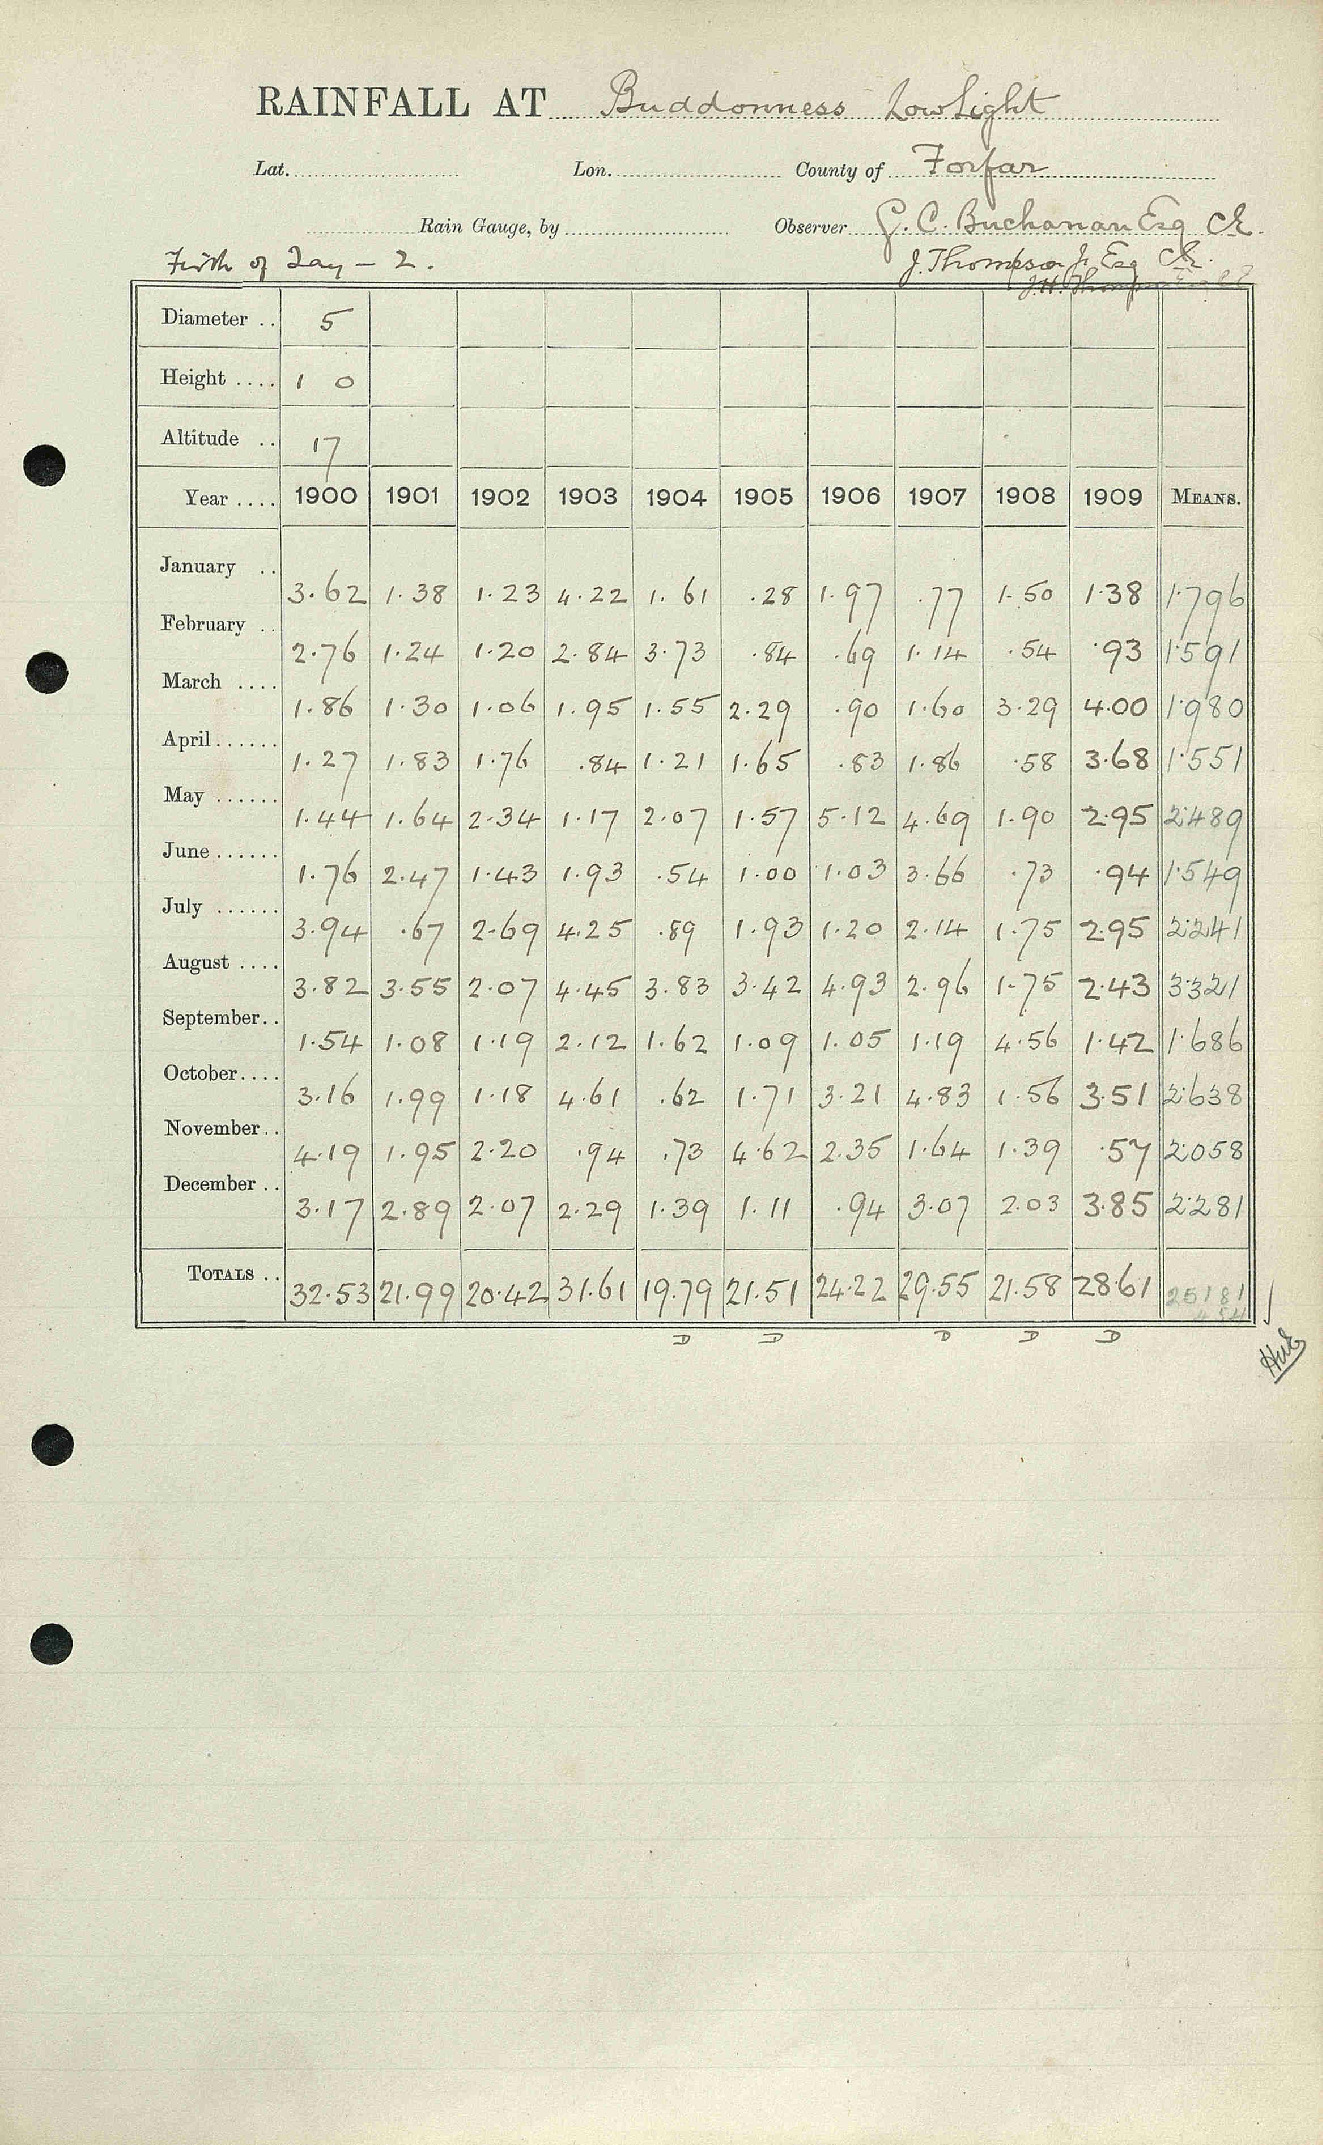 RAINFALL AT Buddonness Low Light
Lat. Lon. County of Forfar
Rain Gauge, by Observer G. C. Buchanan Esq CE.
Firth of Tay – 2. J. Thompson Jr. Esq CE.
J. H. Thompson
Diameter .. 5
Height .... 1 0
Altitude .. 17
Year .... 1900 1901 1902 1903 1904 1905 1906 1907 1908 1909 MEANS.
January .. 3.62 1.38 1.23 4.22 1.61 .28 1.97 .77 1.50 1.38 1.796
February .. 2.76 1.24 1.20 2.84 3.73 .84 .69 1.14 .54 .93 1.591
March .... 1.86 1.30 1.06 1.95 1.55 2.29 .90 1.60 3.29 4.00 1.980
April...... 1.27 1.83 1.76 .84 1.21 1.65 .83 1.86 .58 3.68 1.551
May ...... 1.44 1.64 2.34 1.17 2.07 1.57 5.12 4.69 1.90 2.95 2.489
June...... 1.76 2.47 1.43 1.93 .54 1.00 1.03 3.66 .73 .94 1.549
July ...... 3.94 .67 2.69 4.25 .89 1.93 1.20 2.14 1.75 2.95 2.241
August .... 3.82 3.55 2.07 4.45 3.83 3.42 4.93 2.96 1.75 2.43 3.321
September.. 1.54 1.08 1.19 2.12 1.62 1.09 1.05 1.19 4.56 1.42 1.686
October.... 3.16 1.99 1.18 4.61 .62 1.71 3.21 4.83 1.56 3.51 2.638
November.. 4.19 1.95 2.20 .94 .73 4.62 2.35 1.64 1.39 .57 2.058
December .. 3.17 2.89 2.07 2.29 1.39 1.11 .94 3.07 2.03 3.85 2.281
TOTALS .. 32.53 21.99 20.42 31.61 19.79 21.51 24.22 29.55 21.58 28.61 25181
D D D D D